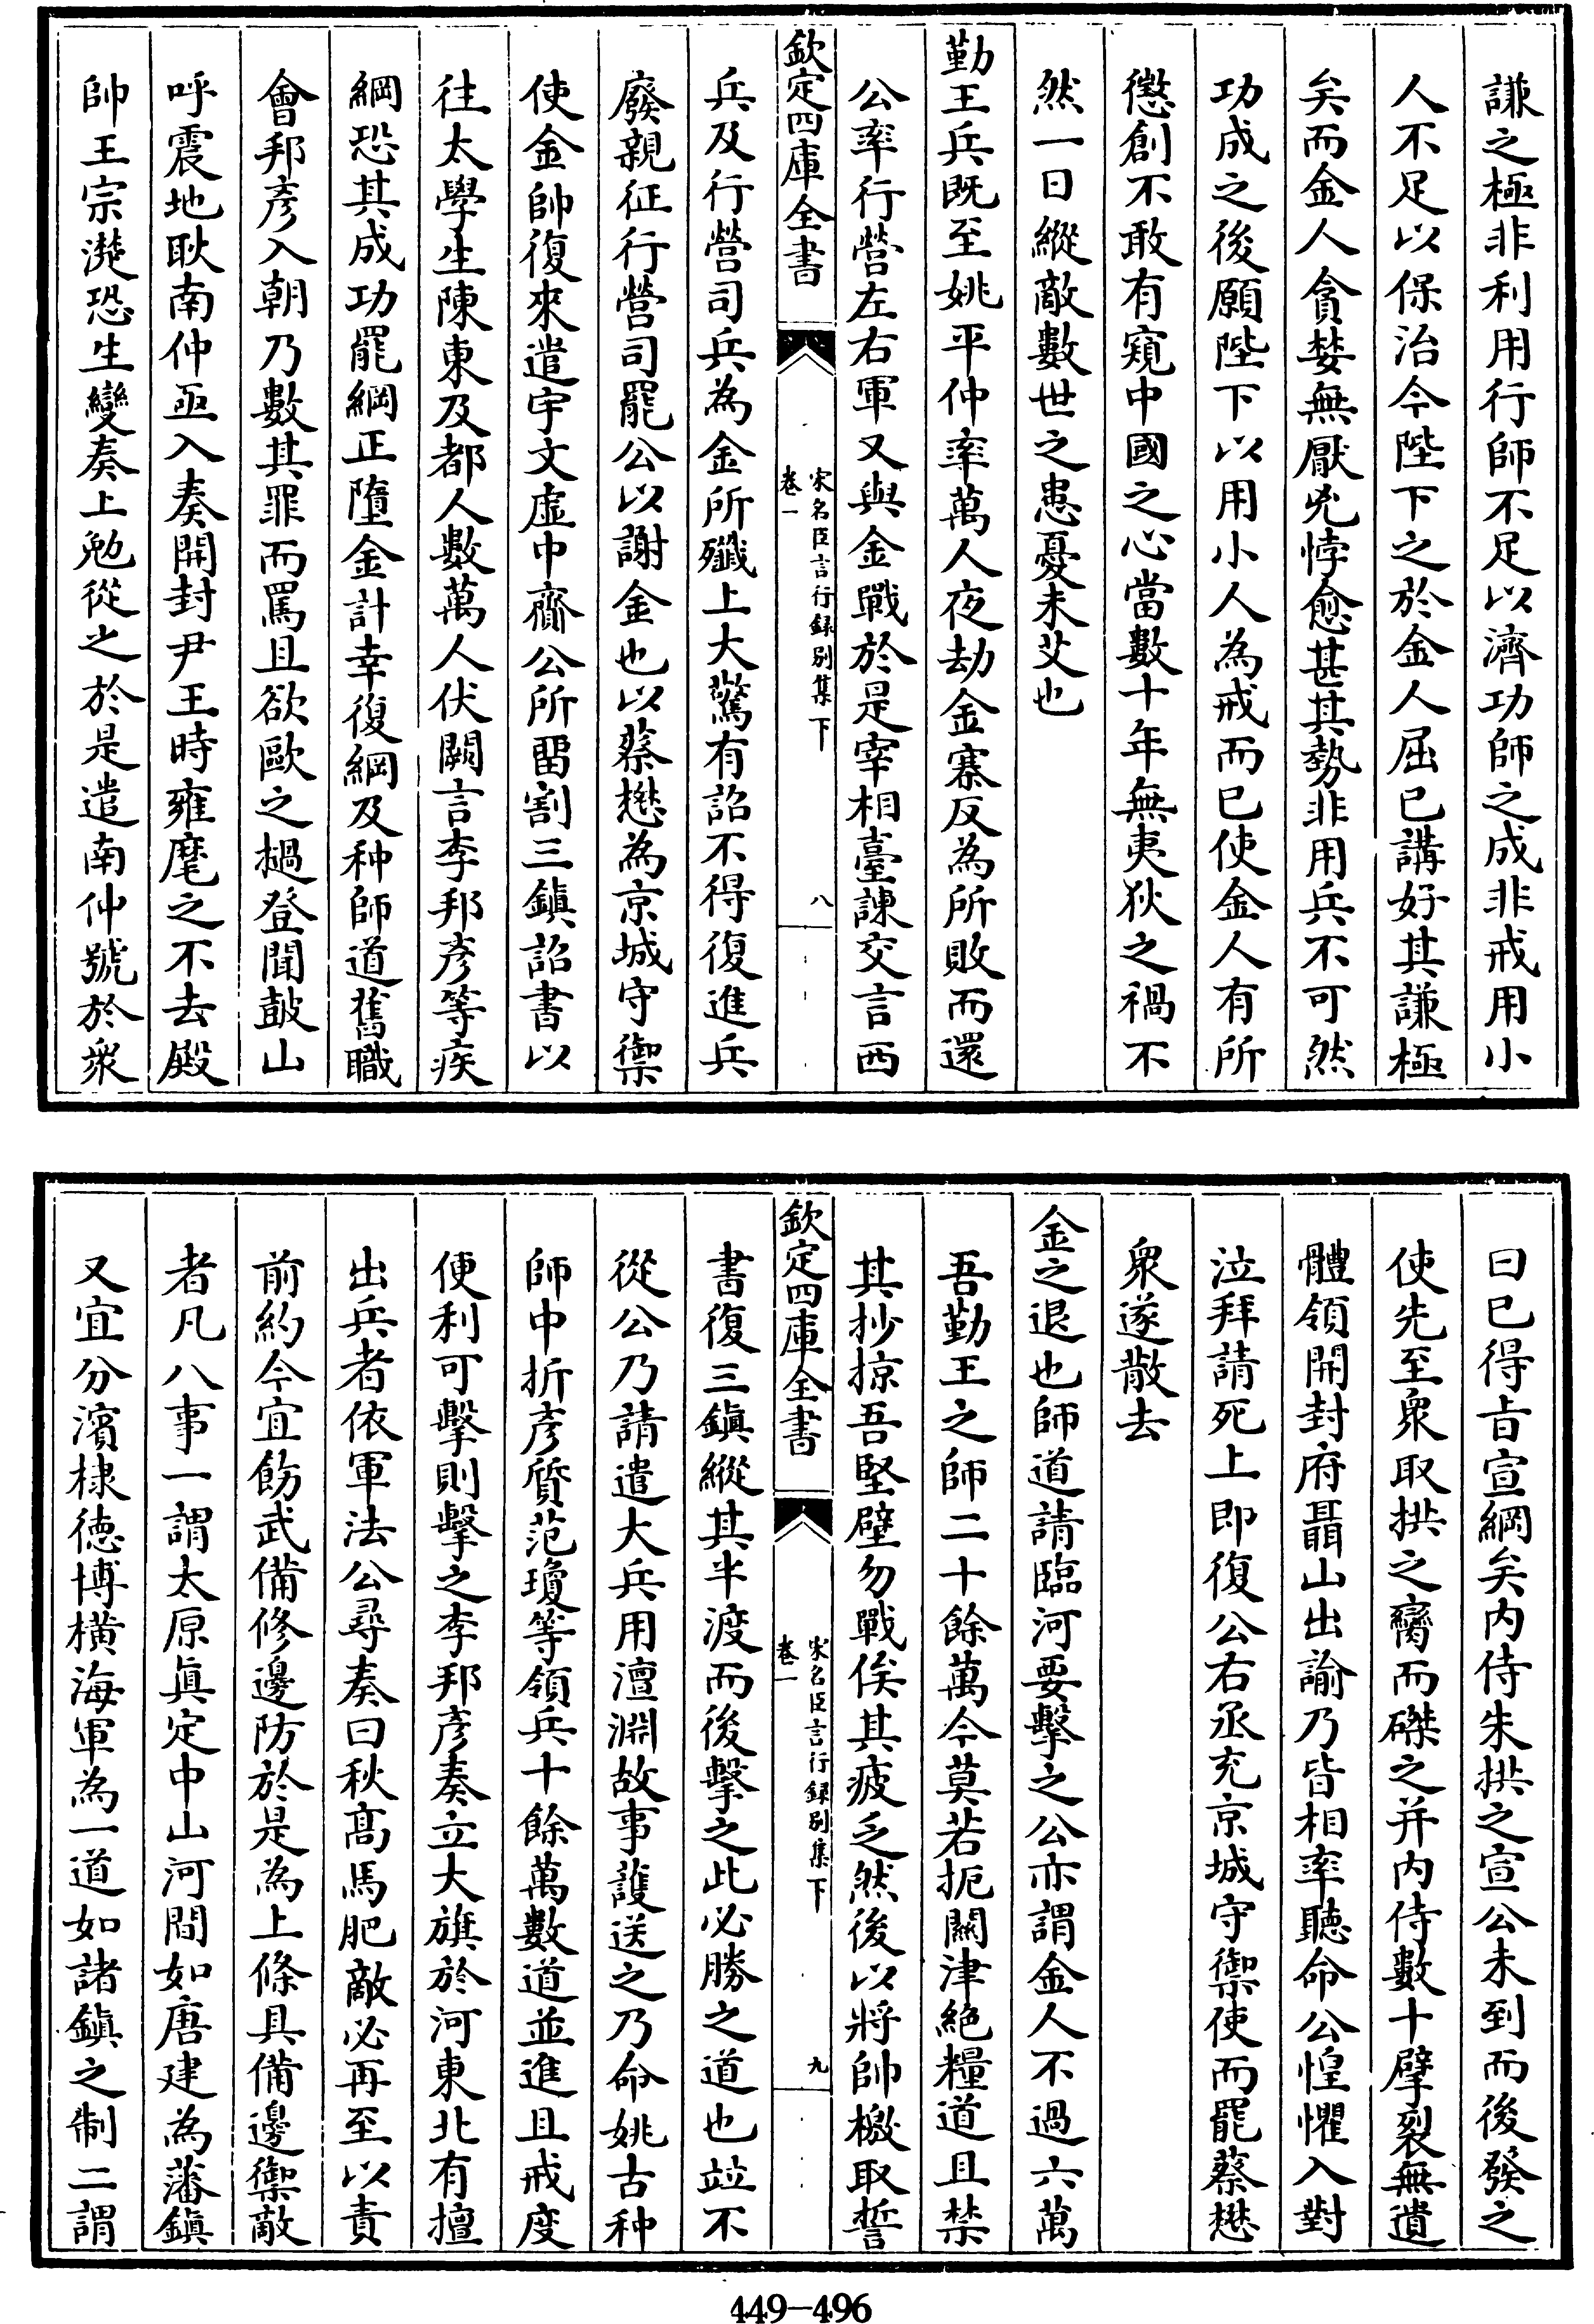 謙之極非利用行師不足以濟功師之成非戒用小
人不足以保治今陛下之於金人屈已講好其謙極
矣而金人貪婪無厭兇悖愈甚其勢非用兵不可然
功成之後願陛下以用小人為戒而已使金人有所
懲創不敢有窺中國之心當數十年無夷狄之禍不
然一日縱敵數世之患憂未艾也
勤王兵既至姚平仲率萬人夜劫金寨反為所敗而還
公率行營左右軍又與金戰於是宰相臺諫交言西
欽定四庫全書
宋名臣言行録别集下
卷一
八
兵及行營司兵為金所殲上大驚有詔不得復進兵
廢親征行營司罷公以謝金也以蔡懋為京城守禦
使金帥復來遣宇文虛中齎公所留割三鎮詔書以
往太學生陳東及都人數萬人伏闕言李邦彥等疾
綱恐其成功罷綱正墮金計幸復綱及种師道舊職
會邦彥入朝乃數其罪而罵且欲歐之撾登聞鼓山
呼震地耿南仲亟入奏開封尹王時雍麾之不去殿
帥王宗濋恐生變奏上勉從之於是遣南仲號於衆
曰已得旨宣綱矣内侍朱拱之宣公未到而後發之
使先至衆取拱之臠而磔之并内侍數十擘裂無遺
體領開封府聶山出諭乃皆相率聽命公惶懼入對
泣拜請死上即復公右丞充京城守禦使而罷蔡懋
衆遂散去
金之退也師道請臨河要擊之公亦謂金人不過六萬
吾勤王之師二十餘萬今莫若扼關津絶糧道且禁
其抄掠吾堅壁勿戰俟其疲乏然後以將帥檄取誓
欽定四庫全書
宋名臣言行録别集下
卷一
九
書復三鎮縱其半渡而後擊之此必勝之道也竝不
從公乃請遣大兵用澶淵故事護送之乃命姚古种
師中折彥質范瓊等領兵十餘萬數道並進且戒度
便利可擊則擊之李邦彥奏立大旗於河東北有擅
出兵者依軍法公尋奏曰秋高馬肥敵必再至以責
前約今宜飭武備修邊防於是為上條具備邊禦敵
者凡八事一謂太原真定中山河間如唐建為藩鎮
又宜分濱棣德博横海軍為一道如諸鎮之制二謂
449-496